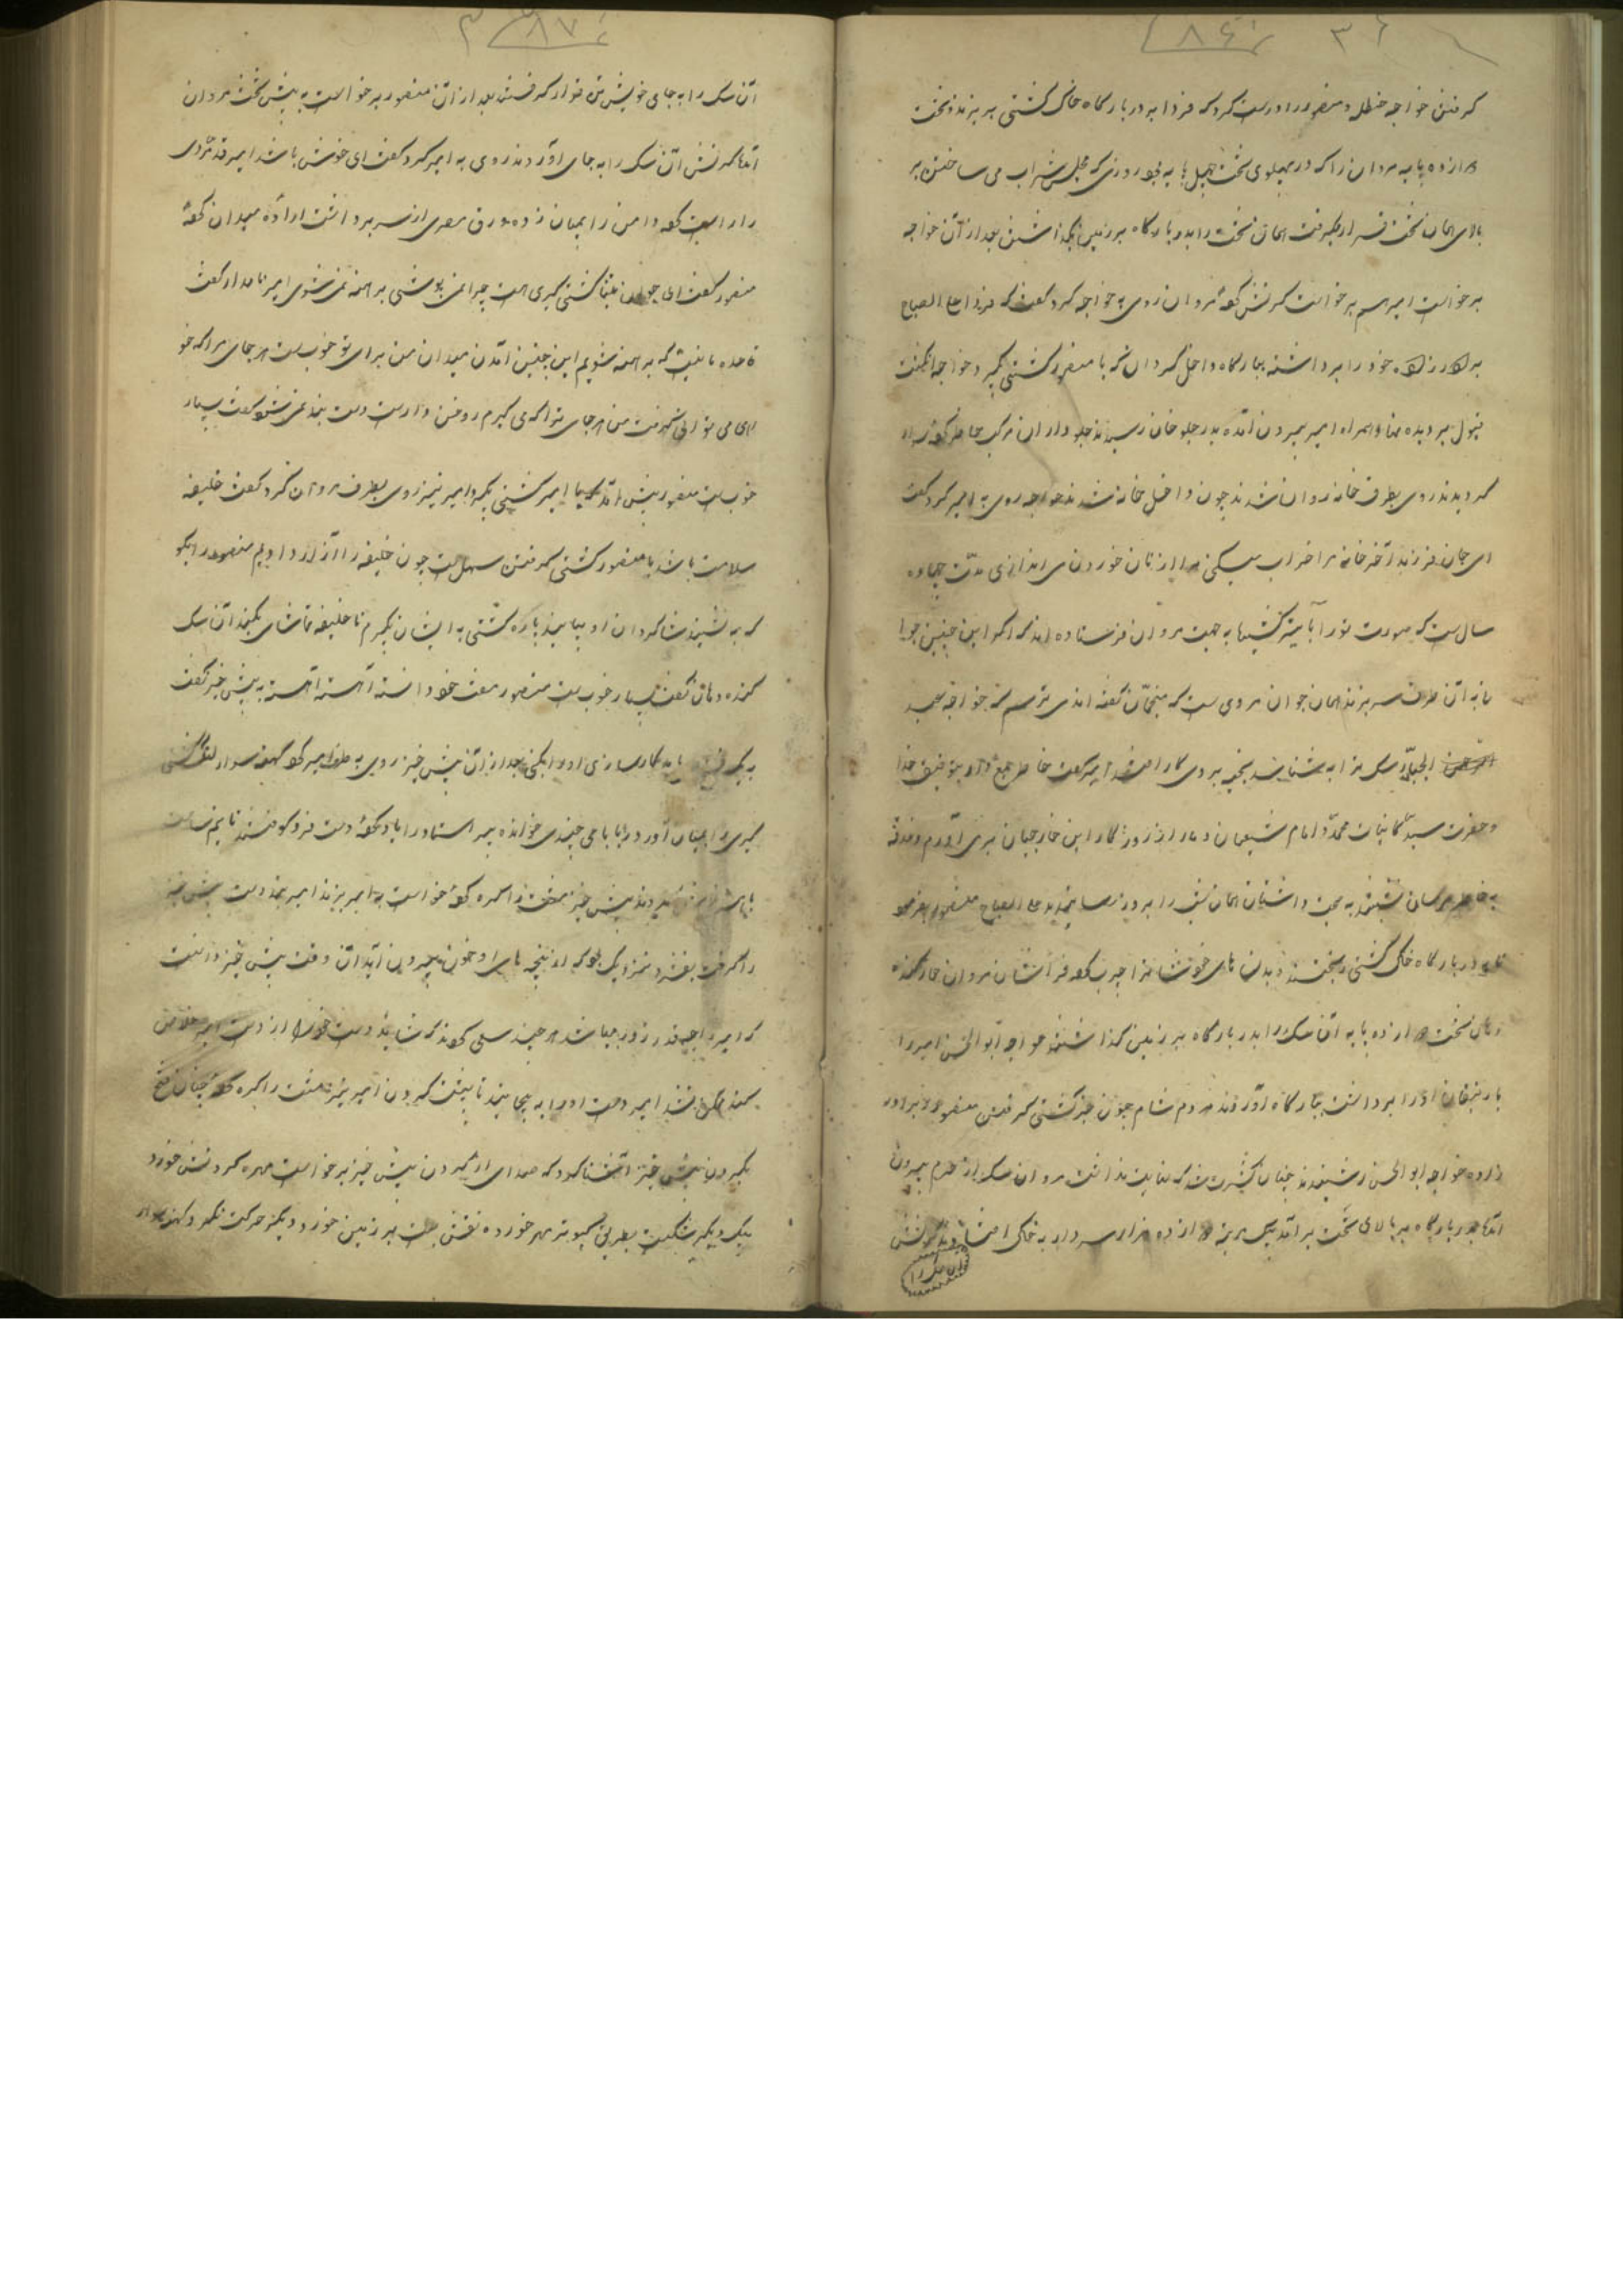 ۸۶
گرفتن خواجه حنظل و منصور را درست کرد که فردا به در بارگاه خاک کشتی بریزند و تخت
دوازده پایه مروان را که در پهلوی تخت چهل پایه بود روزی که مجلس شراب می ساختن بر
بالای همان تخت قرار میگرفت همان تخت را بدر بارگاه بر زمین بگذاشتن بعد از آن خواجه
برخواست امیر هم برخواست کرنش کرده مروان روی به خواجه کرد گفت که فردا علی الصباح
خود را برداشته ببارگاه داخل گردان که با منصور کشتی بگیرد خواجه انگشت
قبول بر دیده نهاد همراه امیر بیرون آمده بدر جلو خان رسیدند جلوداران مرکب حاضر کرده سوار
گردیدند روی بطرف خانه روان شدند چون داخل خانه شدند خواجه روی به امیر کرد گفت
ای جان فرزند آخر خانه مرا خراب میکنی مرا از نان خوردن می اندازی مدت چهارده
سال ست که صورت تو را کشیها به جهت مروان فرستاده اند که اگر این چنین جوا
نا به آن طرف سر بزند همان جوان مروی ست که منجمان گفته اند می ترسم که خواجه سعید
الجبلی سک ترا به شناسد امیر گفت خاطر جمع دار به توفیق خدا
و حضرت سید کائینات محمد و امام شیعیان دمار از روزگار این خارجیان بر می آورم
نشستند به صحبت داشتان همان شب را به روز رسانیدند علی الصباح منصور بفرمود
تا بدر بارگاه خاک کشتی ریختند و بدن های خوشانرا چرب کرده فراشان مروان
تخت دوازده پایه آن سک را بدر بارگاه بر زمین گذاشتند خواجه ابوالحسن امیر را
با رفیقان او را برداشت ببارگاه آوردند مردم شام چون خبر کشتی گرفتن منصور را برادر
زاده خواجه ابوالحسن شنیدند چنان کثرت شد که نهایت نداشت مروان سک از حرم بیرون
آمد بدر بارگاه بر بالای تخت بر آمد یک مرتبه دوازده هزار سردار به خاک افتادند کرنش
مروان سک را
۸۷
آن سک را به جای خویش قرار گرفتند بعد از آن منصور برخواست به پیش تخت مروان
آمد کرنش آن سک را به جای آورد و روی به امیر کرد گفت ای خوش باشد امیر قد مردی
را راست کرد دامن را بمیان زده ورق مصری از سر برداشت اراده میدان کرد
منصور گفت ای جوان کشتی گیری هست چرا نمی پوشی برهنه نمی شوی امیر نامدار گفت
قاعده ما نیست که برهنه شویم این چنین آمدن میدان من برای تو خوب ست هر جای مرا که خو
اهی می توانی گرفت من هر جای ترا که می گیرم روغن دارست دست بند نمی شود گفت بسیار
خوب ست منصور پیش آمد که بیا امیر کشتی بگیر امیر نیز روی بطرف مروان کرد گفت خلیفه
سلامت باشد با منصور کشتی گرفتن سهل ست چون خلیفه را آزار دادیم منصور را بگو
که به نشیند شاگردان او بیایند یاره کشتی به ایشان بگیرم تا خلیفه تماشای بکند آن سک
خنده زنان گفت بسیار خوب ست منصور مفت خود دانسته آهسته آهسته به پیش خیز گفت
باید کارسازی او را بکنی بعد از آن پیش خیز روی به طرف امیر کرد
بمیان آورد چندی خوانده پیر استاد را یاد کرده دست فرو کوفتند
پیش خیز مشت را گره کرده خواست به امیر بزند امیر بند دست پیش خیز
را گرفت بفشرد از پنجه های او خون بیرون آید آن وقت پیش خیز دانست
که امیر را چه قدر زور میباشد هر چند سعی کرد که شاید دست خود را از دست امیر خلاص
کند ممکن نشد امیر دست او را به پیچانید تا بپشت گردن امیر نیز مشت را گره کرده چنان
بگردن پیش خیز آشنا کرد که صدای از گردن پیش خیز برخواست مهره گردنش خورد
بیک دیگر شکست بطریق کبوتر مهر خورده نقش بست بر زمین خورد و دیگر حرکت نکرد